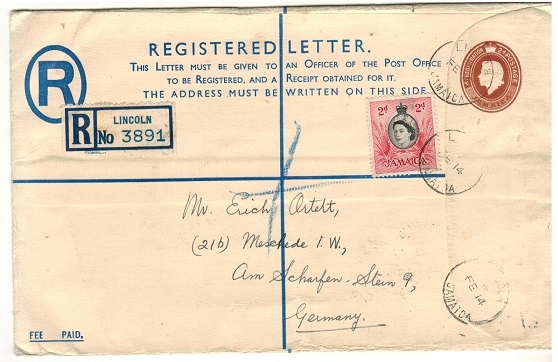 REGISTERED LETTER.
THIS LETTER MUST BE GIVEN TO AN OFFICER OF THE POST OFFICE
TO BE REGISTERED, AND A RECEIPT OBTAINED FOR IT.
THE ADDRESS MUST BE WRITTEN ON THIS SIDE.
R
R LINCOLN
No 3891
2d 2d
JAMAICA
JAMAICA
FE 14
JAMAICA
Mr. Erich Ortelt,
(21b) Meschede i.W.,
Am Scharfen-Stein 9,
Germany.
FEE PAID.